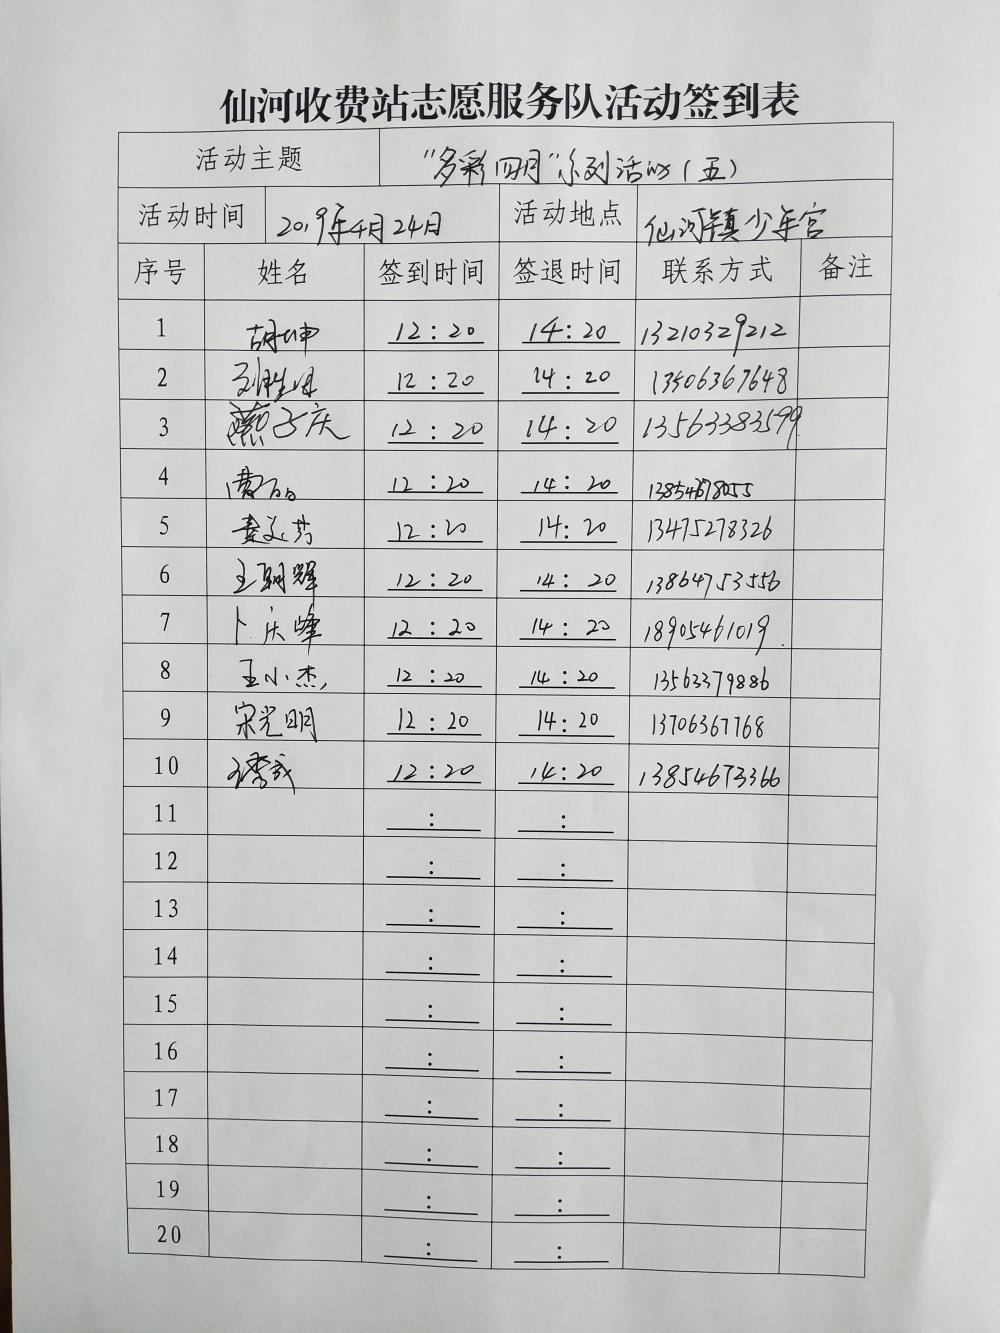 仙河收费站志愿服务队活动签到表
活动主题 “多彩四月”系列活动（五）
活动时间 2019年4月24日 活动地点 仙河镇少年宫
序号 姓名 签到时间 签退时间 联系方式 备注
1 胡坤 12:20 14:20 13210329212
2 12:20 14:20 13506367648
3 燕子庆 12:20 14:20 13563383599
4 12:20 14:20 13854678055
5 12:20 14:20 13475278326
6 王朝辉 12:20 14:20 13864753556
7 卜庆峰 12:20 14:20 18905461019
8 王小杰 12:20 14:20 13563379886
9 宋光明 12:20 14:20 13706367768
10 12:20 14:20 13854673366
11 : :
12 : :
13 : :
14 : :
15 : :
16 : :
17 : :
18 : :
19 : :
20 : :